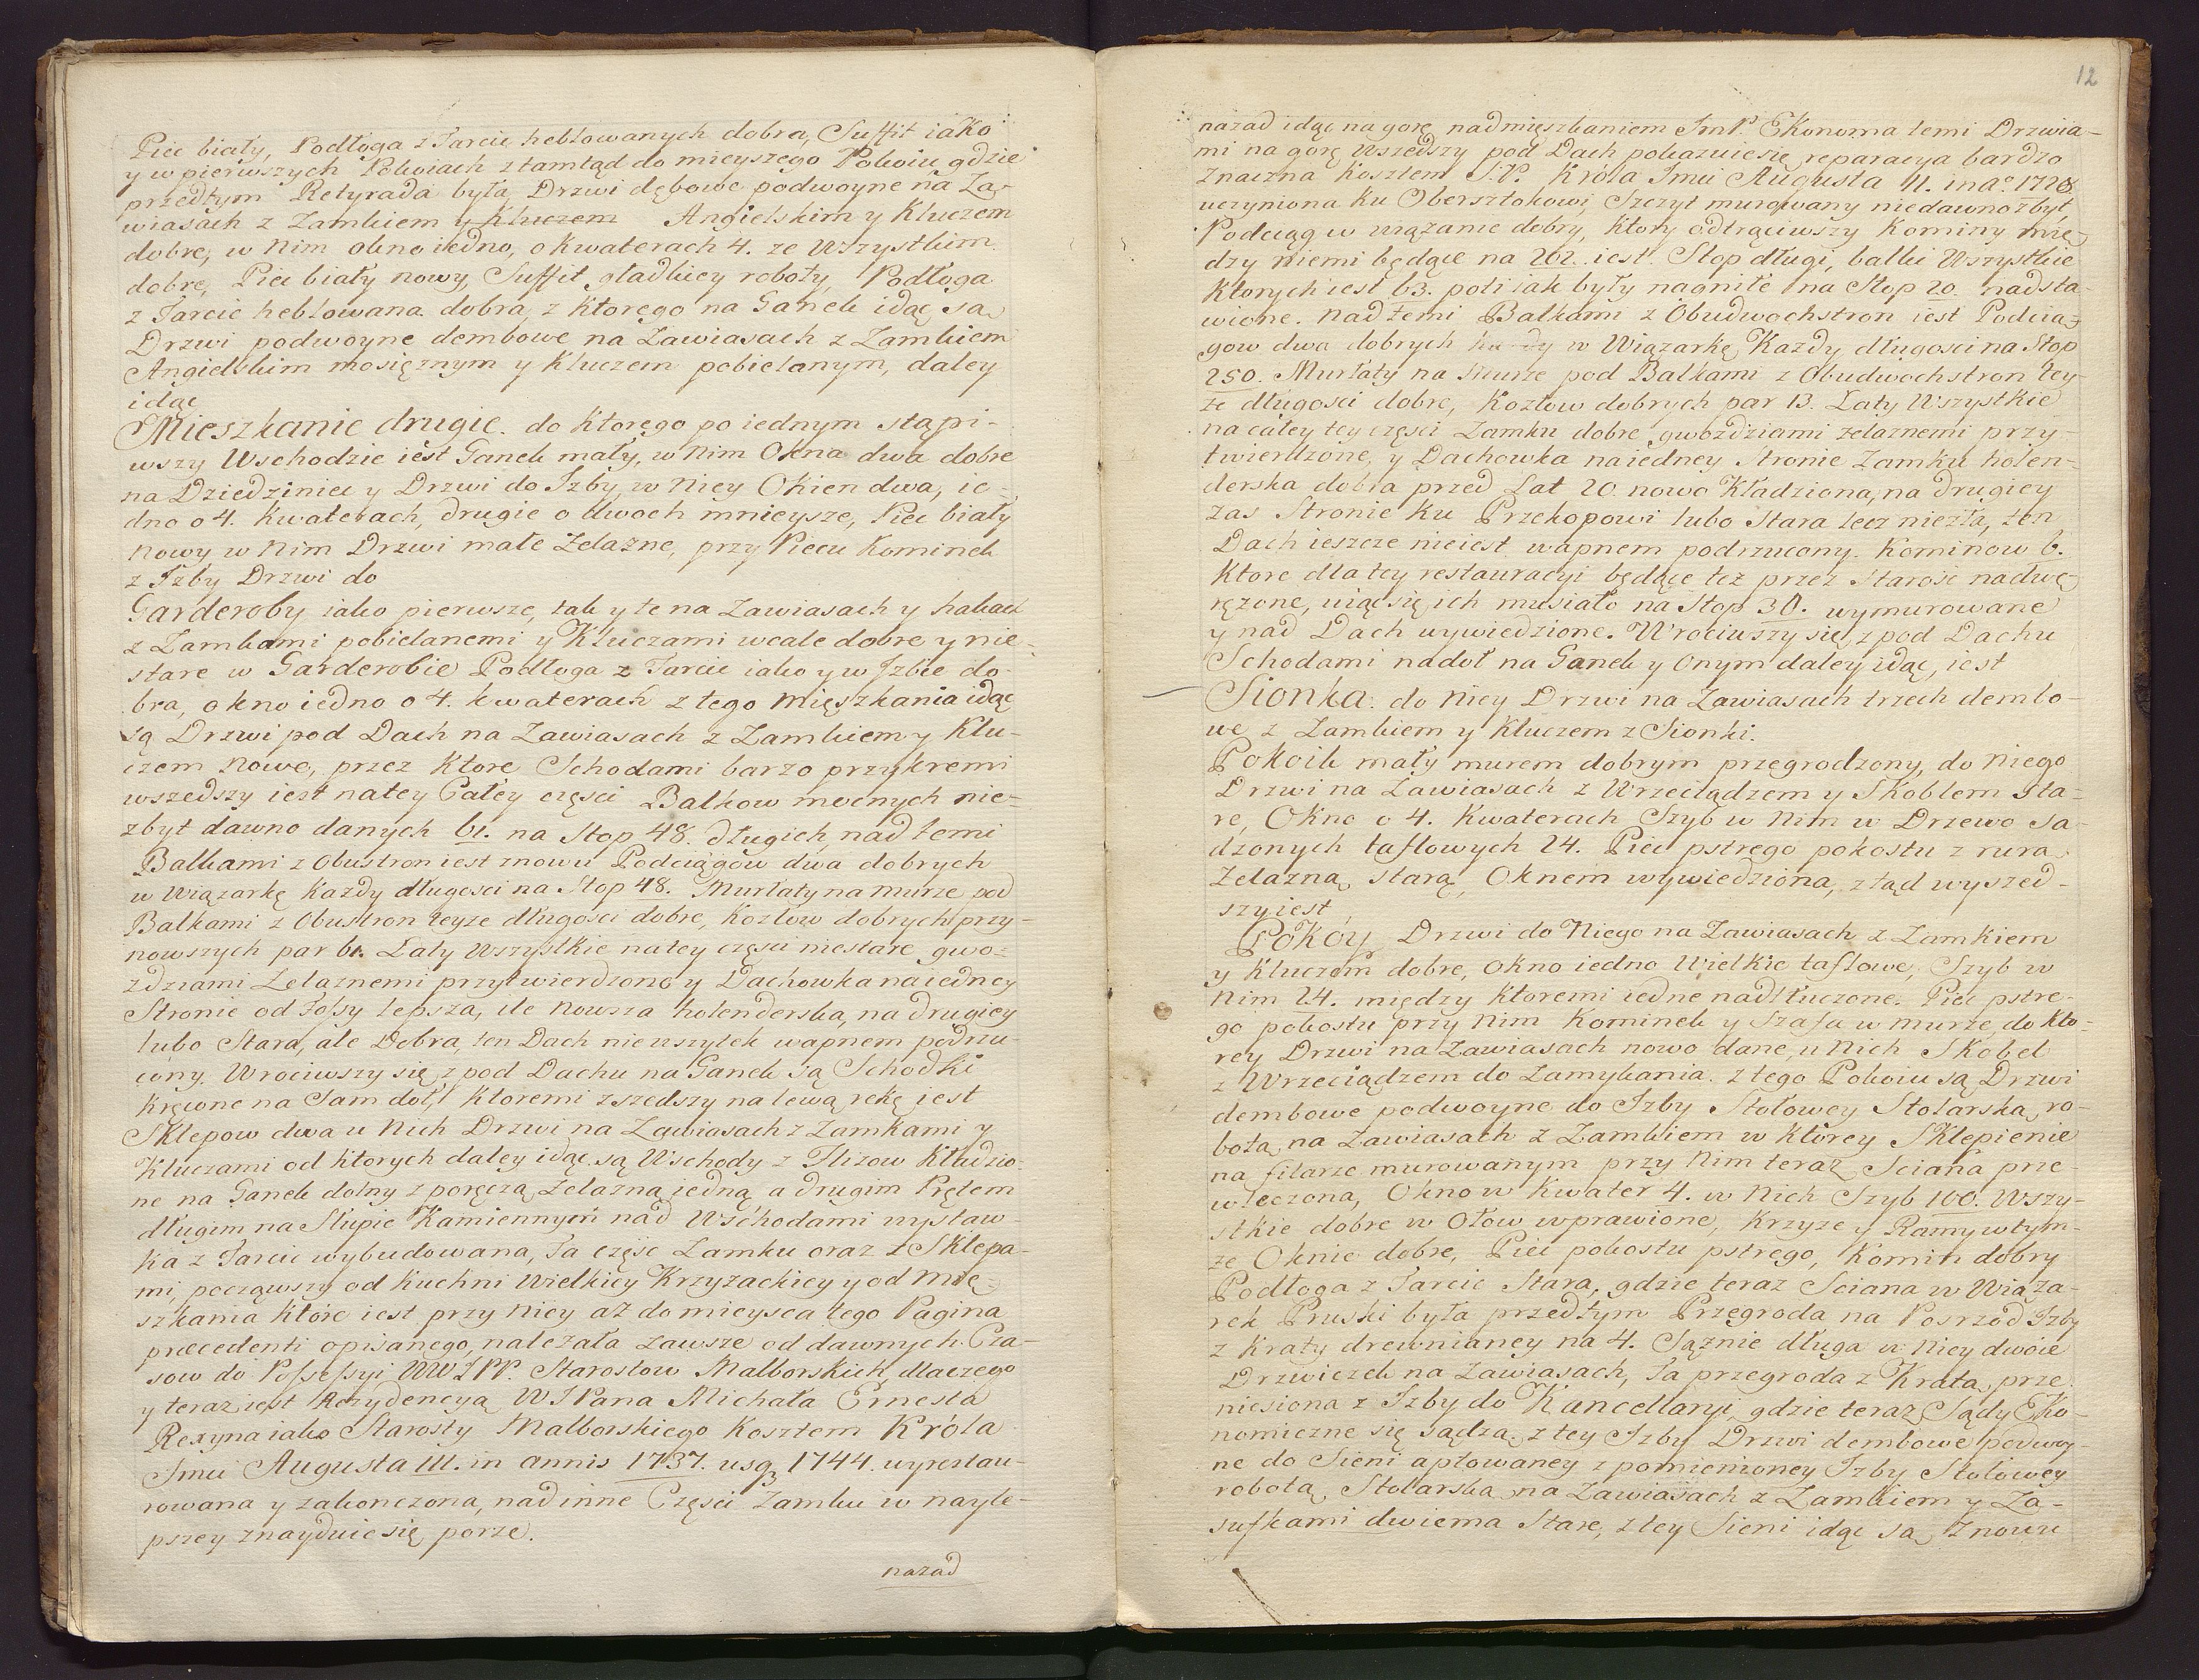 Piec biały, Podłoga z Tarcic heblowanych dobra, Suffit iako
y w pierwszych Pokoiach z tamtąd do mieyszego Pokoiu gdzie
przedtym Retyrada była, Drzwi dębowe podwoyne na Za-
wiasach z Zamkiem y Kluczem Angielskim y Kluczem
dobre, w Nim okno iedno, o Kwaterach 4. ze Wszystkim
dobre, Piec biały nowy, Suffit gładkiey roboty, Podłoga
z Tarcic heblowana dobra, z ktorego na Ganek idąc są
Drzwi podwoyne dembowe na Zawiasach z Zamkiem
Angielskim mosięznym y Kluczem pobielanym, daley
idąc
Mieszkanie drugie. do ktorego po iednym stąpi-
wszy Wschodzie iest Ganek mały, w Nim Okna dwa dobre
na Dziedziniec y Drzwi do Izby, w Niey Okien dwa, ie-
dno o 4. Kwaterach, drugie o dwoch mnieysze, Piec biały
Nowy w Nim Drzwi małe Zelazne, przy Piecu Kominek
z Izby Drzwi do
Garderoby iako pierwsze, tak y te na Zawiasach y hakach
z Zamkami pobielanemi y Kluczami wcale dobre y nie-
stare w Garderobie Podłoga z Tarcic iako y w Izbie do-
bra, okno iedno o 4. kwaterach z tego Mięszkania idąc
są Drzwi pod Dach na Zawiasach z Zamkiem y Klu-
czem Nowe, przez Ktore Schodami barzo przykremi
wszedszy iest na tey Całey częsci Balkow mocnych nie-
zbyt dawno danych 61. na Stop 48. długich, nad temi
Balkami z Obustron iest znowu Podciągow dwa dobrych
w Wiązarkę Kazdy długosci na Stop 48. Murłaty na Murze pod
Balkami z Obustron teyze długosci dobre, Kozłow dobrych przy-
nowszych par 61. Laty Wszystkie na tey częsci niestare gwo-
zdziami Zelaznemi przytwierdzone y Dachowka na iedney
Stronie od Fossy lepsza, ile Nowsza holenderska, na drugiey
lubo Stara, ale Dobra, ten Dach nie wszytek wapnem podrzu-
cony. Wrociwszy się z pod Dachu na Ganek są Schodki
Kręcone na Sam doł, Ktoremi zszedszy na lewą rekę iest
Sklepow dwa u Nich Drzwi na Zawiasach z Zamkami y
Kluczami od ktorych daley idąc są Wschody z Flizow Kładzio-
ne na Ganek dolny z poręczą Zelazną iedną a drugim Prętem
długim na Słupie Kamiennym nad Wschodami wystaw-
ka z Tarcic wybudowana, Ta częsc Zamku oraz z Sklepa-
mi, począwszy od Kuchni Wielkiey Krzyzackiey y od Mię-
szkania Które iest przy Niey aż do mieysca tego Pagina
præcedenti opisanego, nalezała zawsze od dawnych Cza-
sow do Possessyi WWJPP. Starostow Malborskich, dlaczego
y teraz iest Rezydencyą WJPana Michała Ernesta
Rexyna iako Starosty Malborskiego Kosztem Króla
Jmci Augusta III. in annis 1737. usq 1744. wyrestau-
rowana y zakonczona, nad inne Częsci Zamku w nayle-
pszey znayduie się porze.
nazad
12
nazad idąc na gorę nad mięszkaniem JmP. Ekonoma temi Drzwia-
mi na górę Wszedszy pod Dach pokazuie się reparacya bardzo
Znaczna Kosztem S.P. Króla Jmci Augusta II. in aº. 1728
uczyniona ku Obersztokowi, Szczyt murowany niedawno zbyt,
Podciąg w wiązanie dobry, Ktory odtrąciwszy Kominy mię-
dzy niemi będące na 202. iest Stop długi, balki Wszystkie
Ktorych iest 63. poti iak były nagniłe na Stop 20. nadsta-
wione. Nad temi Balkami z Obudwochstron iest Podcią-
gow dwa dobrych w Wiązarkę Kazdy długosci na Stop
250. Murłaty na Murze pod Balkami z Obudwochstron tey-
że długosci dobre, Kozłow dobrych par 13. Laty Wszystkie
na całey tey częsci Zamku dobre gwozdziami zelaznemi przy-
twierdzone, y Dachowka na iedney Stronie Zamku holen-
derska dobra przed Lat 20. nowo Kładziona, na drugiey
zas Stronie ku Przekopowi lubo Stara lecz niezła, ten
Dach ieszcze nieiest wapnem podrzucony. Kominow 6.
Ktore dla tey restauracyi będące też przez Starość nadwę-
rężone, uiąć się ich musiało na Stop 30. wymurowane
y nad Dach wywiedzione. Wrociwszy się z pod Dachu
Schodami nadoł na Ganek y onym daley idąc, iest
Sionka: do Niey Drzwi na Zawiasach trzech dembo-
we z Zamkiem y Kluczem z Sionki.
Pokoik mały murem dobrym przegrodzony, do Niego
Drzwi na Zawiasach z Wrzeciądzem y Skoblem sta-
re, Okno o 4. Kwaterach Szyb w Nim w Drzewo sa-
dzonych taflowych 24. Piec pstrego pokostu z rurą
Zelazną starą, Oknem wywiedzioną, ztąd wyszed-
szy iest
Pokoy Drzwi do Niego na Zawiasach z Zamkiem
y Kluczem dobre, Okno iedno Wielkie taflowe, Szyb w
Nim 24. między Ktoremi iedne nadtłuczone. Piec pstre-
go pokostu przy Nim Kominek y Szafa w murze, do kto-
rey Drzwi na Zawiasach nowo dane, u Nich Skobel
z Wrzeciądzem do Zamykania. z tego Pokoiu są Drzwi
dembowe podwoyne do Izby Stołowey Stolarską ro-
botą na Zawiasach z Zamkiem w ktorey Sklepienie
na filarze murowanym przy Nim teraz Sciana prze-
wleczona, Okno w Kwater 4. w Nich Szyb 100. Wszy-
stkie dobre w Ołow wprawione, Krzyze y Ramy w tym-
że Oknie dobre, Piec pokostu pstrego, Komin dobry
Podłoga z Tarcic Stara, gdzie teraz Sciana w Wiąza-
rek Pruski była przedtym Przegroda na Posrzod Izby
z Kraty drewnianey na 4. Sąznie długa w Niey dwoie
Drzwiczek na Zawiasach, Ta przegroda z Kratą prze-
niesiona z Izby do Kancellaryi gdzie teraz Sądy Eko-
nomiczne się sądzą. z tey Izby Drzwi dembowe podwoy-
ne do Sieni aptowaney z pomienioney Izby Stołowey
robotą Stolarską na Zawiasach z Zamkiem y Za-
sufkami dwiema Stare, z tey Sieni idąc są Znowu